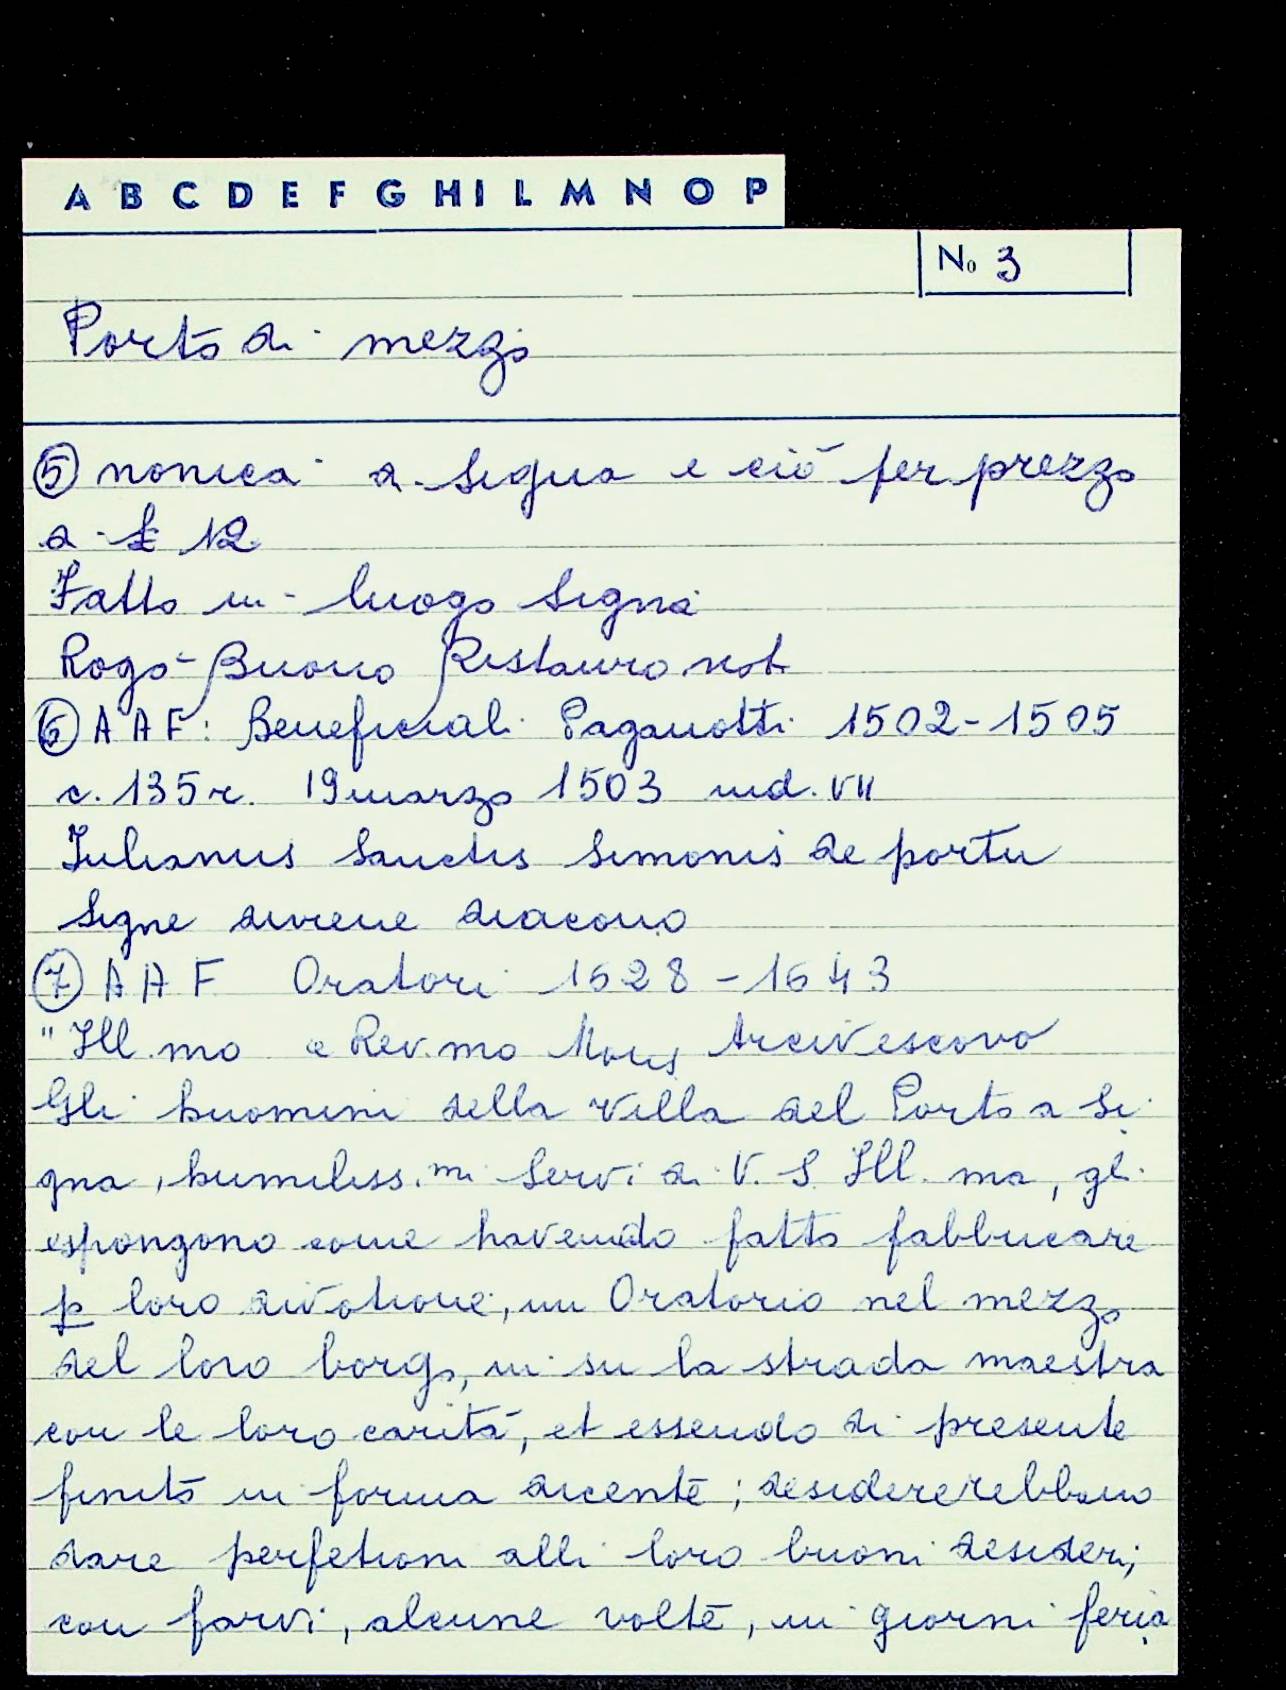 A B C D E F G H I L M N O P
No 3
Porto di mezzo
⑤ nonica a Signa e ciò per prezzo
a £ 12
Fatto in luogo Signa
Rogò Buono Ristauro not
⑥ A A F: Beneficiali Paganotti 1502-1505
c. 135r. 19 marzo 1503 ind. VII
Iulianus Sanctis Simonis de portu
Signe diviene diacono
⑦ A A F Oratori 1628-1643
"Ill.mo e Rev.mo Mons Arcivescovo
Gli huomini della Villa del Porto a Si
gna, humiliss.mi Servi di V. S. Ill.ma, gli
espongono come havendo fatto fabbricare
p loro divotione, un Oratorio nel mezzo
del loro borgo, in su la strada maestra
con le loro carità, et essendo di presente
finito in forma dicente; desidererebbano
dare perfetioni alli loro buoni desideri;
con farvi, alcune volte, in giorni feria